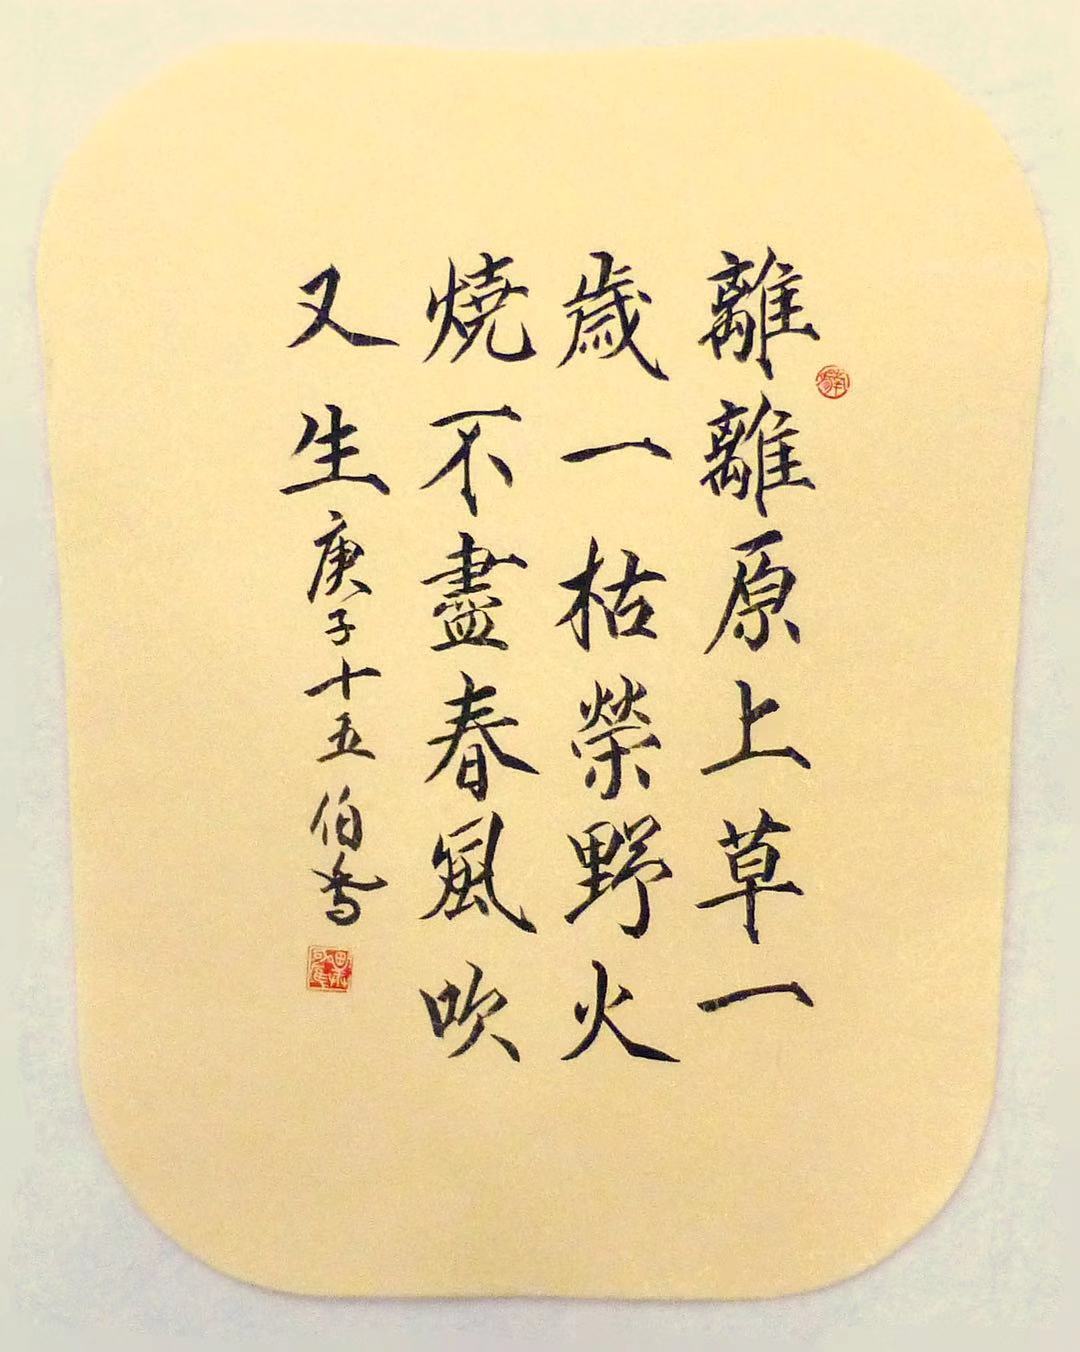 離離原上草一
歲一枯榮野火
燒不盡春風吹
又生庚子十五伯喬